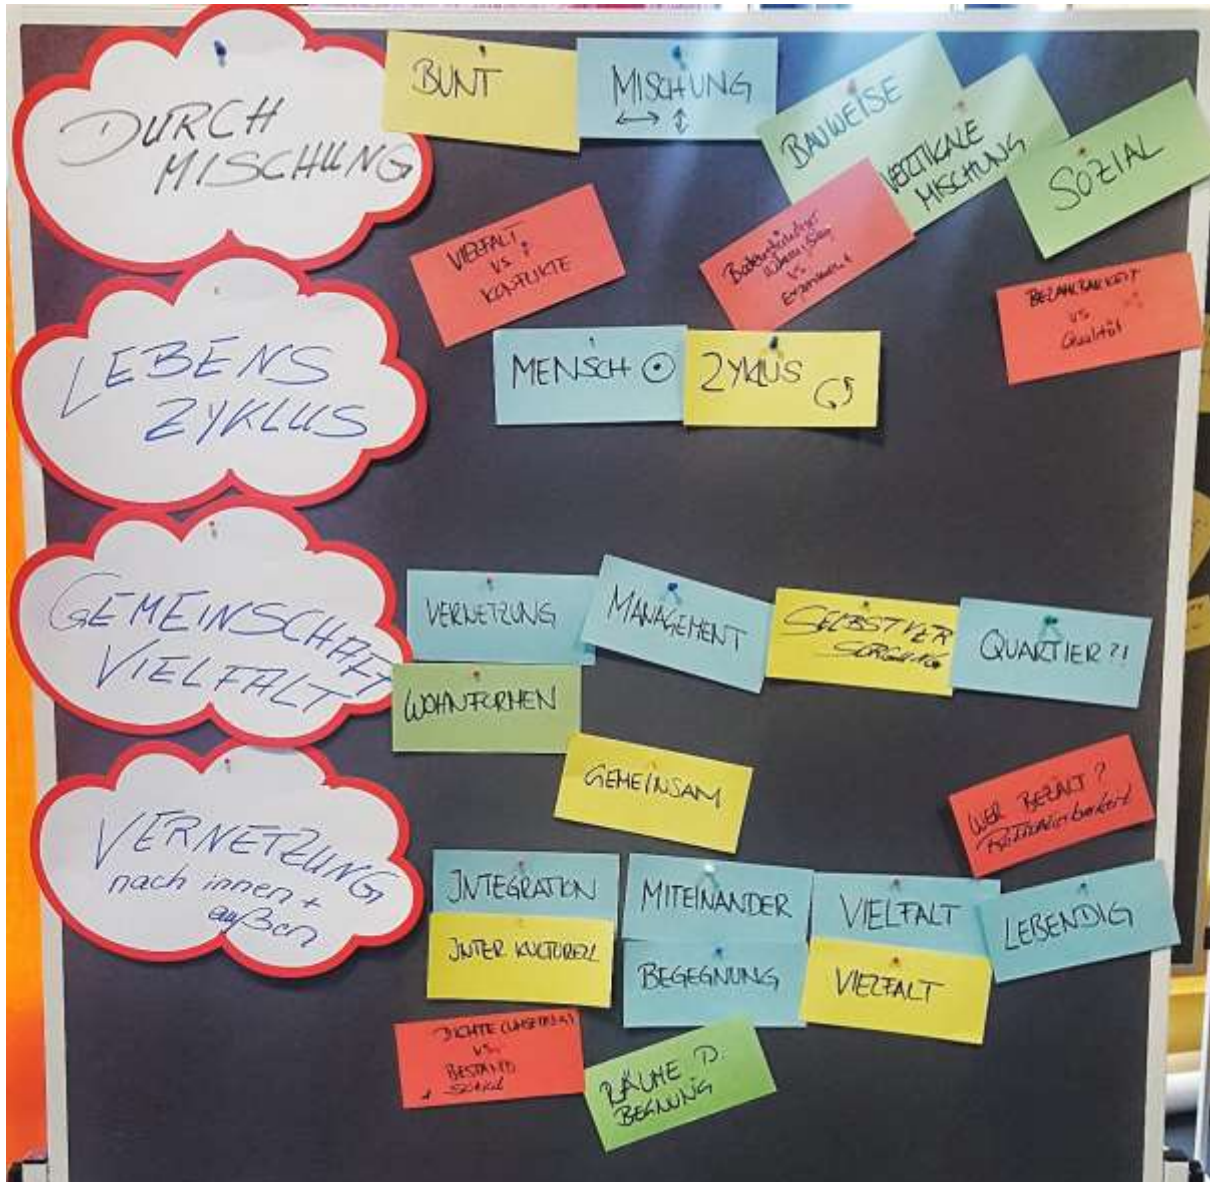 DURCH
MISCHUNG
BUNT
MISCHUNG
BAUWEISE
VERTIKALE
MISCHUNG
SOZIAL
VIELFALT
VS
KONFLIKTE
vs
Experiment
BEZAHLBARKEIT
vs
Qualität
LEBENS
ZYKLUS
MENSCH
ZYKLUS
GEMEINSCHAFT
VIELFALT
VERNETZUNG
MANAGEMENT
SELBSTVER
SORGUNG
QUARTIER?!
WOHNFORMEN
GEMEINSAM
WER BEZALT?
Finanzierbarkeit
VERNETZUNG
nach innen +
außen
INTEGRATION
MITEINANDER
VIELFALT
LEBENDIG
INTER KULTURELL
BEGEGNUNG
VIELFALT
DICHTE
VS.
BESTAND
RÄUME D.
BEGNUNG